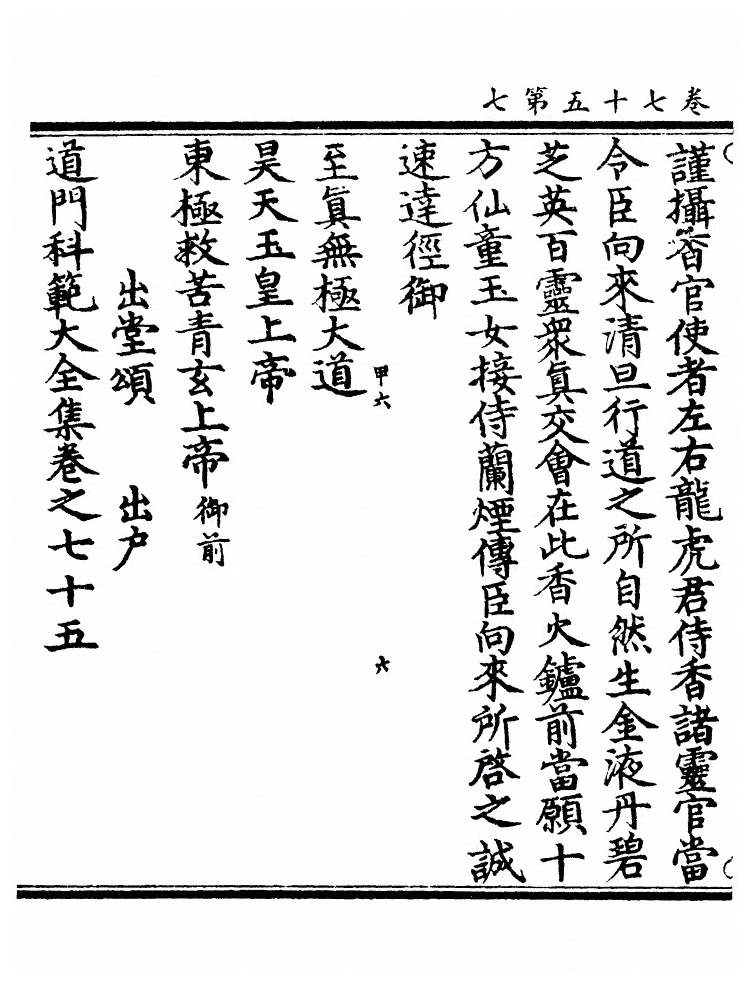 卷七十五第七
謹攝香官使者左右龍虎君侍香諸靈官當
令臣向來清旦行道之所自然生金液丹碧
芝英百靈衆眞交會在此香火鑪前當願十
方仙童玉女接侍蘭煙傳臣向來所啓之誠
速達徑御
甲六 六
至眞無極大道
昊天玉皇上帝
東極救苦青玄上帝御前
出堂頌 出户
道門科範大全集卷之七十五